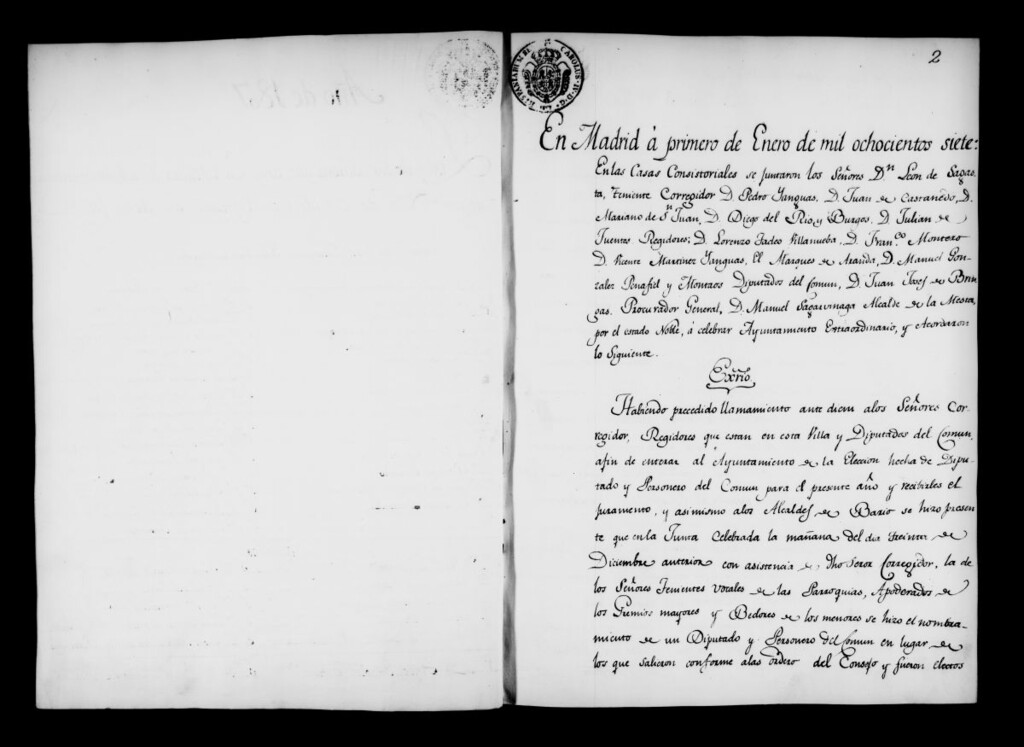 2
CAROLUS IV D G
En Madrid á primero de Enero de mil ochocientos siete:
En las Casas Consistoriales se juntaron los Señores Dn Leon de Sagas
ta, Teniente Corregidor D. Pedro Yanguas, D. Juan de Castanedo, D.
Mariano de Sn Juan, D. Diego del Rio, y Burgos, D. Julian de
Fuentes Regidores; D. Lorenzo Tadeo Villanueba, D. Franco Montero
D. Vicente Martinez Yanguas, El Marques de Aranda, D. Manuel Gon-
zalez Penafiel y Monteros Diputados del Comun, D. Juan Josef de Brin
gas, Procurador General, D. Manuel Sagarvinaga Alcalde de la Mesta,
por el estado Noble, á celebrar Ayuntamiento Extraordinario, y Acordaron
lo Siguiente.
Exrio
Habiendo precedido llamamiento ante diem alos Señores Cor
regidor, Regidores que estan en esta Villa y Diputados del Comun,
afin de enterar al Ayuntamiento de la Eleccion hecha de Dipu-
tado y Personero del Comun para el presente año y recibirles el
juramento, y asimismo alos Alcaldes de Bario se hizo presen
te que en la Junta Celebrada la mañana del dia treinta de
Diciembre anterior con asistencia de dho Señor Corregidor, la de
los Señores Tenientes Vocales de las Parroquias, Apoderados de
los Gremios mayores y Bedores de los menores se hizo el nombra-
miento de un Diputado y Personero del Comun en lugar de
los que salieron conforme alas ordens del Consejo y fueron electos